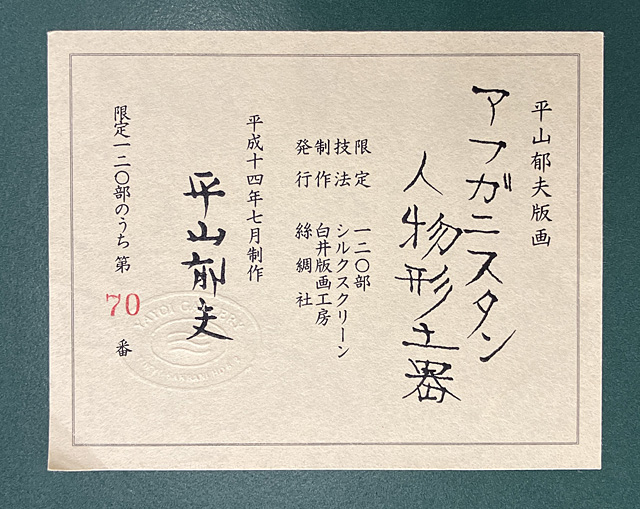 平山郁夫版画
アフガニスタン
人物形土器
限定 一二〇部
技法 シルクスクリーン
制作 白井版画工房
発行 絲綢社
平成十四年七月制作
平山郁夫
限定一二〇部のうち 第 70 番